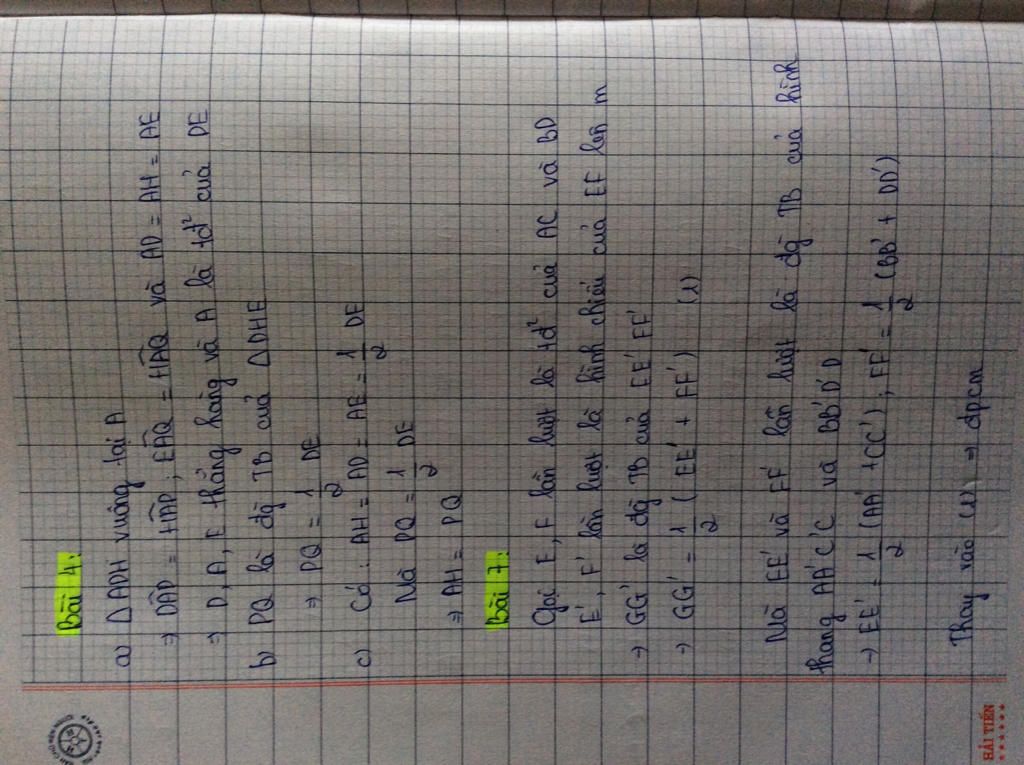 Bài 4:
a) ΔADH vuông tại A
⇒ DAP = HAP ; EAQ = HAQ và AD = AH = AE
⇒ D, A, E thẳng hàng và A là tđ² của DE
b) PQ là đg TB của ΔDHE
⇒ PQ = 1/2 DE
c) Có : AH = AD = AE = 1/2 DE
Mà PQ = 1/2 DE
⇒ AH = PQ
Bài 7:
Gọi E, F lần lượt là tđ² của AC và BD
E', F' lần lượt là hình chiếu của EF lên m
→ GG' là đg TB của EE' FF'
→ GG' = 1/2 ( EE' + FF' ) (1)
Mà EE' và FF' lần lượt là đg TB của hình
thang AA'C'C và BB'D'D
→ EE' = 1/2 (AA' + CC') ; FF' = 1/2 (BB' + DD')
Thay vào (1) ⇒ đpcm
HẢI TIẾN